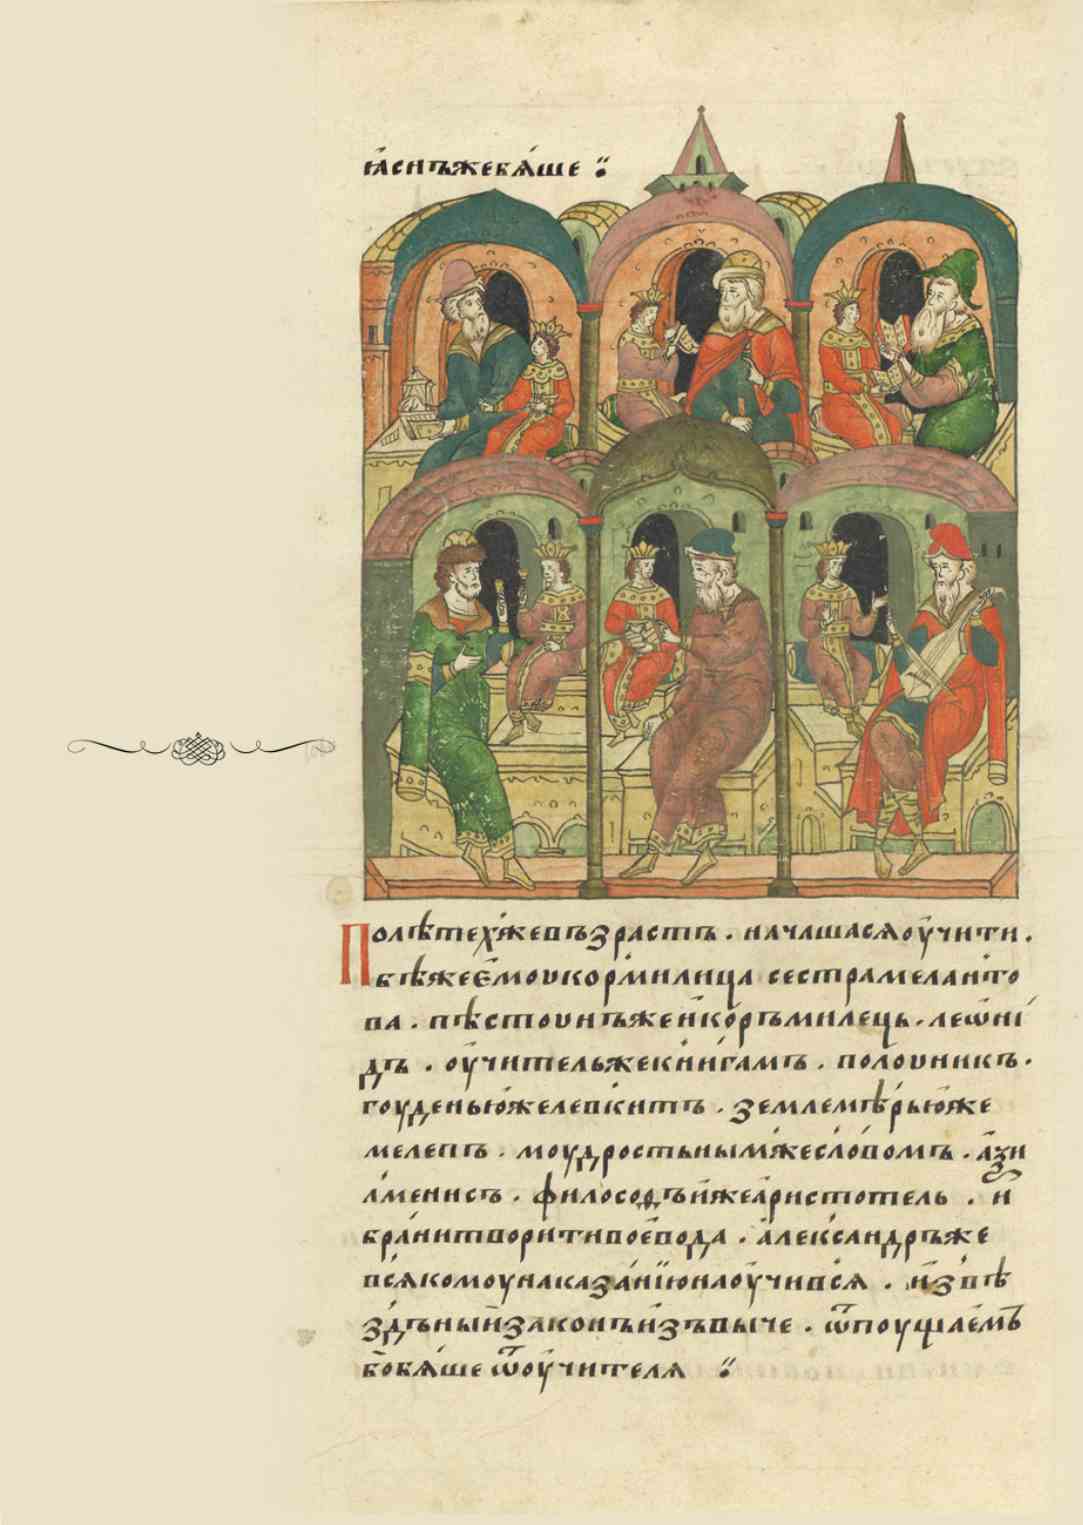 ꙗ҆снъжебѧ́ше ⁘
Полѣтехъ́жевъзрастъ . начашасѧоу҆чити .
бѣжее҆моукорми́лица сестрамеланто
ва . пѣстоунъжеи҆ко́рьмилець . леѡ҆ні́
дъ . оу҆чительжекни́гамъ . поло́уникъ .
гоуденьюжелевкиптъ . землемѣ́рьюже
мелепъ . моудростьны́мжесло́вомъ . а҆ѯи
ли́менисъ . филосоѳъи҆жеа҆ристотель . и҆
бра́нитвори́тивоево́да . а҆лекса́ндръже
всѧкомоунаказа́нїюнаоу҆чивсѧ . и҆звѣ
здъны́йзаконъи҆зъвы́че . ѿпоуща́емъ
бобѧ́ше ѿоу҆чителѧ ⁘